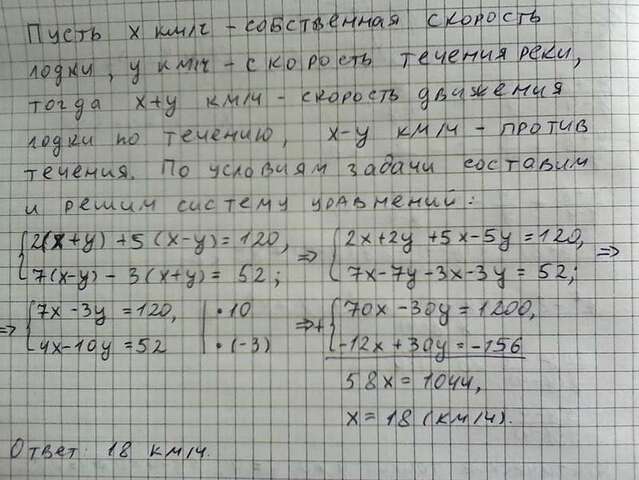 Пусть x км/ч - собственная скорость
лодки, y км/ч - скорость течения реки,
тогда x+y км/ч - скорость движения
лодки по течению, x-y км/ч - против
течения. По условиям задачи составим
и решим систему уравнений:
{2(x+y)+5(x-y)=120, ⇒ {2x+2y+5x-5y=120, ⇒
7(x-y)-3(x+y)=52; 7x-7y-3x-3y=52;
⇒ {7x-3y=120, | ·10 ⇒ + {70x-30y=1200,
4x-10y=52 | ·(-3) -12x+30y=-156
58x=1044,
x=18 (км/ч).
Ответ: 18 км/ч.